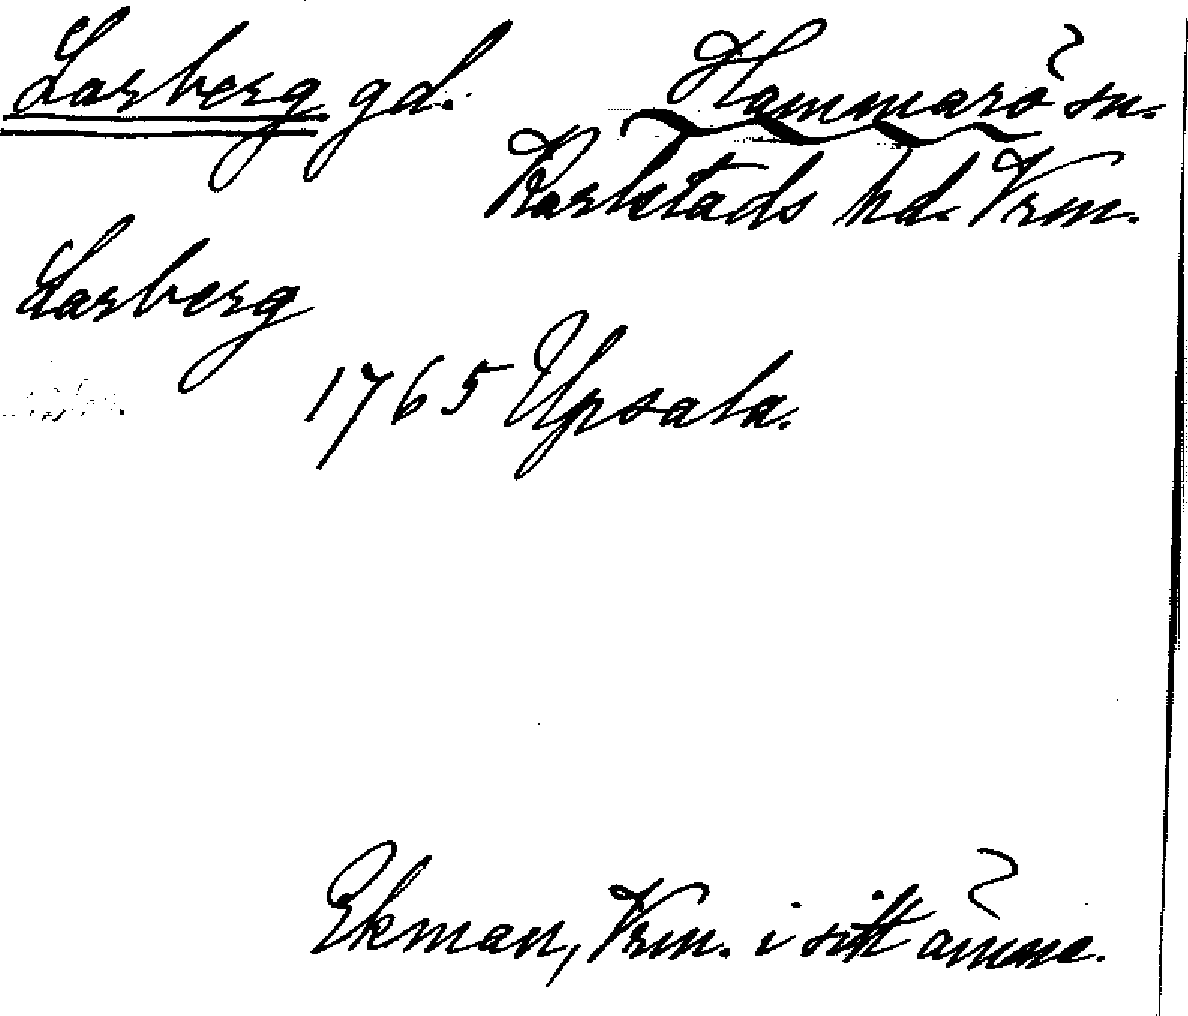 Larberg gd. Hammarö sn.
Karlstads hd. Vrm.
Larberg
1765 Upsala.
Ekman, Vrm. i sitt ämne.